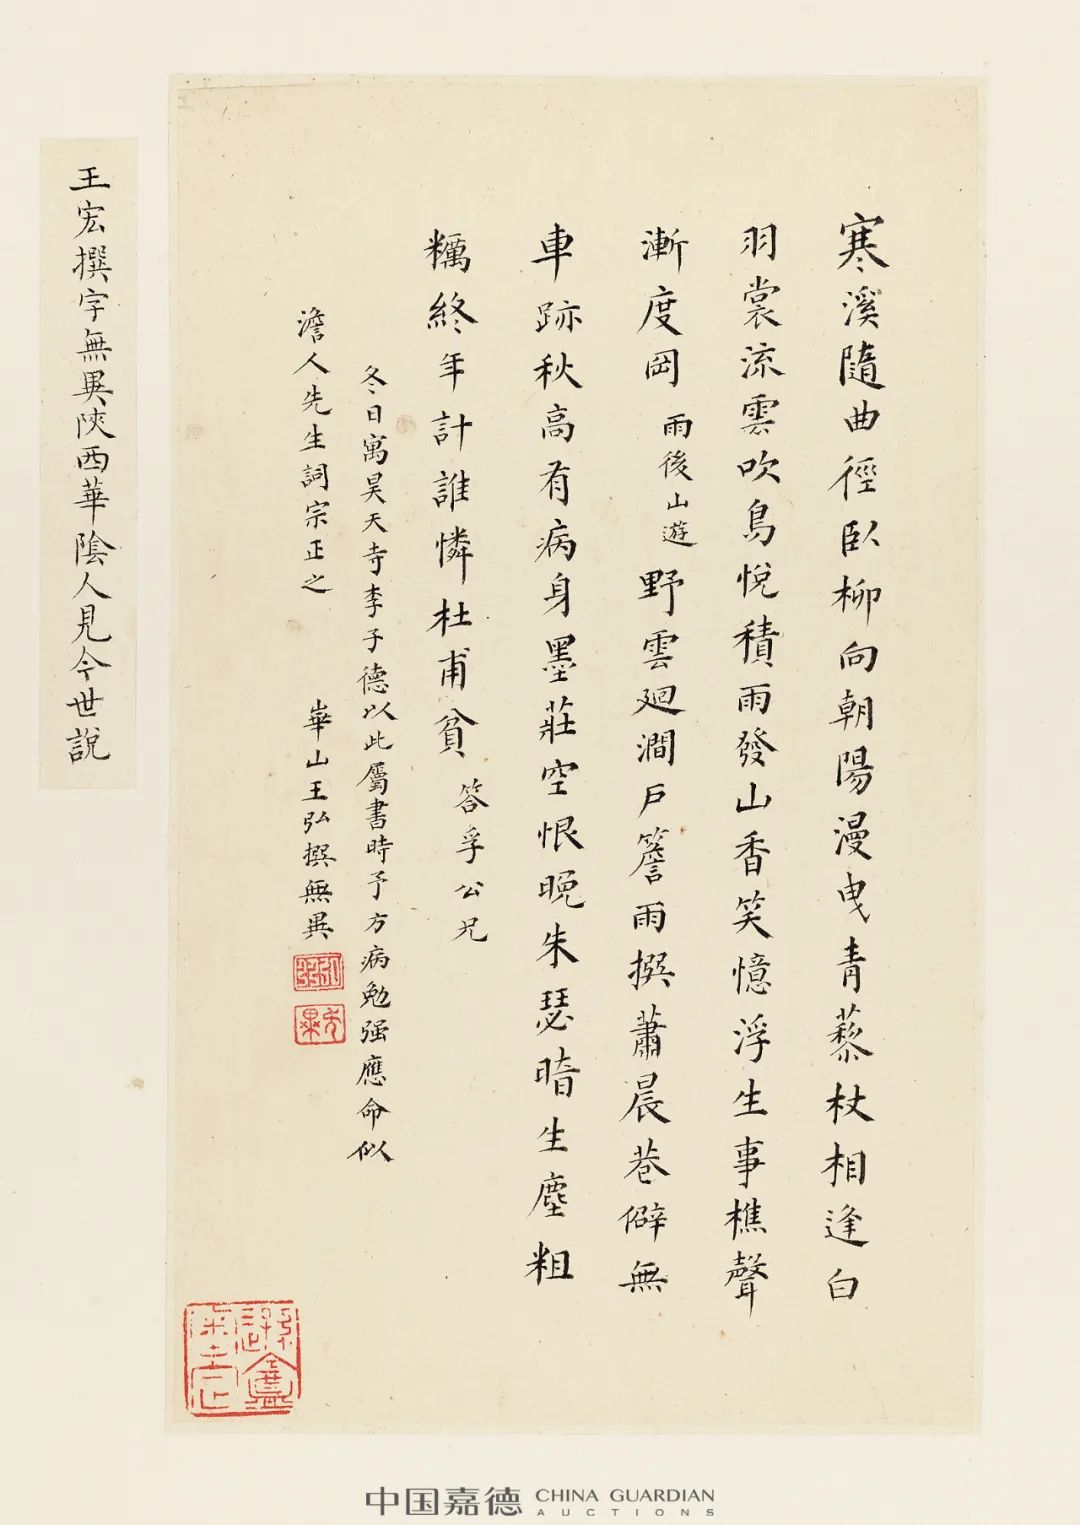 寒溪隨曲徑臥柳向朝陽漫曳青藜杖相逢白
羽裳流雲吹鳥悅積雨發山香笑憶浮生事樵聲
漸度岡 雨後山遊 野雲廻澗戶簷雨撰蕭晨巷僻無
車跡秋高有病身墨莊空恨晚朱瑟暗生塵粗
糲終年計誰憐杜甫貧 答孚公兄
冬日寓昊天寺李子德以此屬書時予方病勉强應命似
澹人先生詞宗正之 崋山王弘撰無異
王宏撰字無異陝西華陰人見今世說
中国嘉德 CHINA GUARDIAN
AUCTIONS